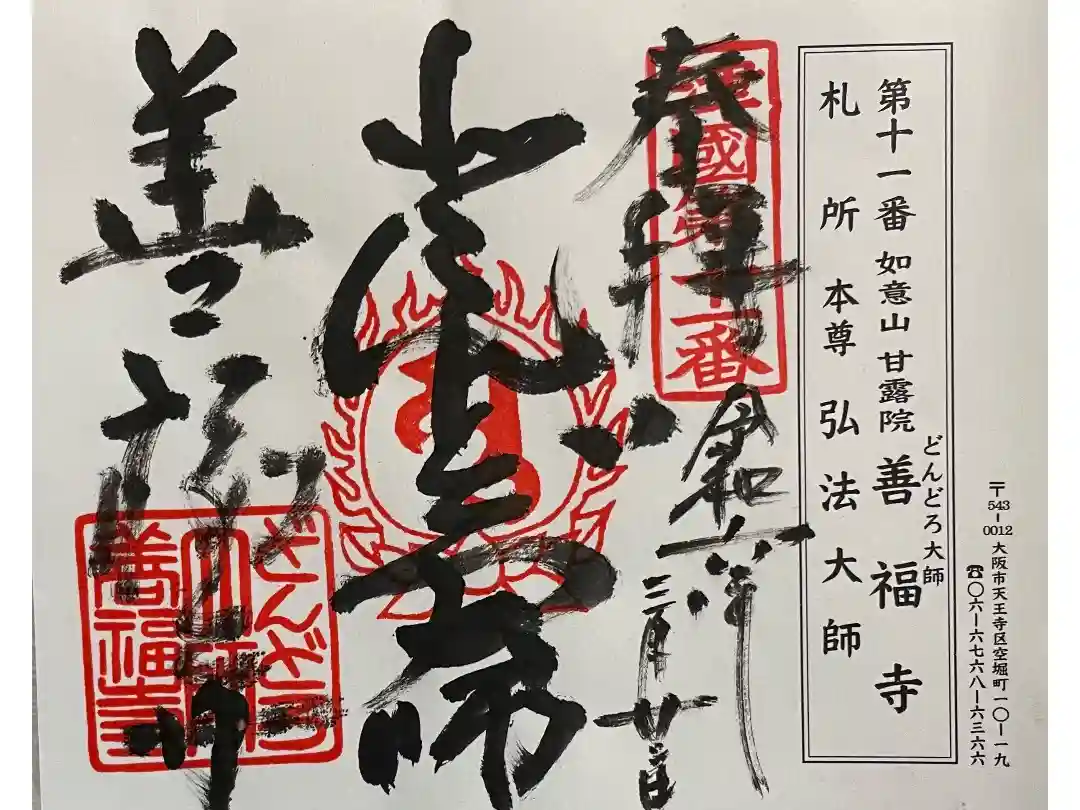 〒543-0012 大阪市天王寺区空堀町一〇ー一九
☎〇六ー六七六八ー六三六六
どんどろ大師
第十一番 如意山 甘露院 善福寺
札所本尊 弘法大師
奉拝
令和六年
三月廿日
大師
善福寺
どんどろ
大師
善福寺